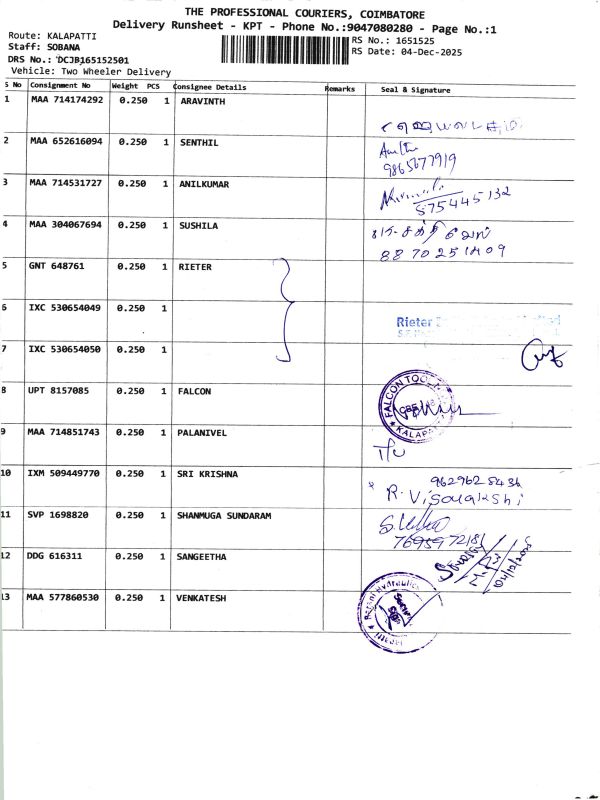 THE PROFESSIONAL COURIERS, COIMBATORE
Delivery Runsheet - KPT - Phone No.:9047080280 - Page No.:1
Route: KALAPATTI
Staff: SOBANA
DRS No.: DCJB165152501
Vehicle: Two Wheeler Delivery
RS No.: 1651525
RS Date: 04-Dec-2025
S No Consignment No Weight PCS Consignee Details Remarks Seal & Signature
1 MAA 714174292 0.250 1 ARAVINTH
2 MAA 652616094 0.250 1 SENTHIL
9865677919
3 MAA 714531727 0.250 1 ANILKUMAR
875445132
4 MAA 304067694 0.250 1 SUSHILA
8870251409
5 GNT 648761 0.250 1 RIETER
6 IXC 530654049 0.250 1
Rieter
7 IXC 530654050 0.250 1
8 UPT 8157085 0.250 1 FALCON
FALCON TOO
KALAPATTI
9 MAA 714851743 0.250 1 PALANIVEL
10 IXM 509449770 0.250 1 SRI KRISHNA
9629625436
R. Visalakshi
11 SVP 1698820 0.250 1 SHANMUGA SUNDARAM
7695972181
12 DDG 616311 0.250 1 SANGEETHA
04/12/2025
13 MAA 577860530 0.250 1 VENKATESH